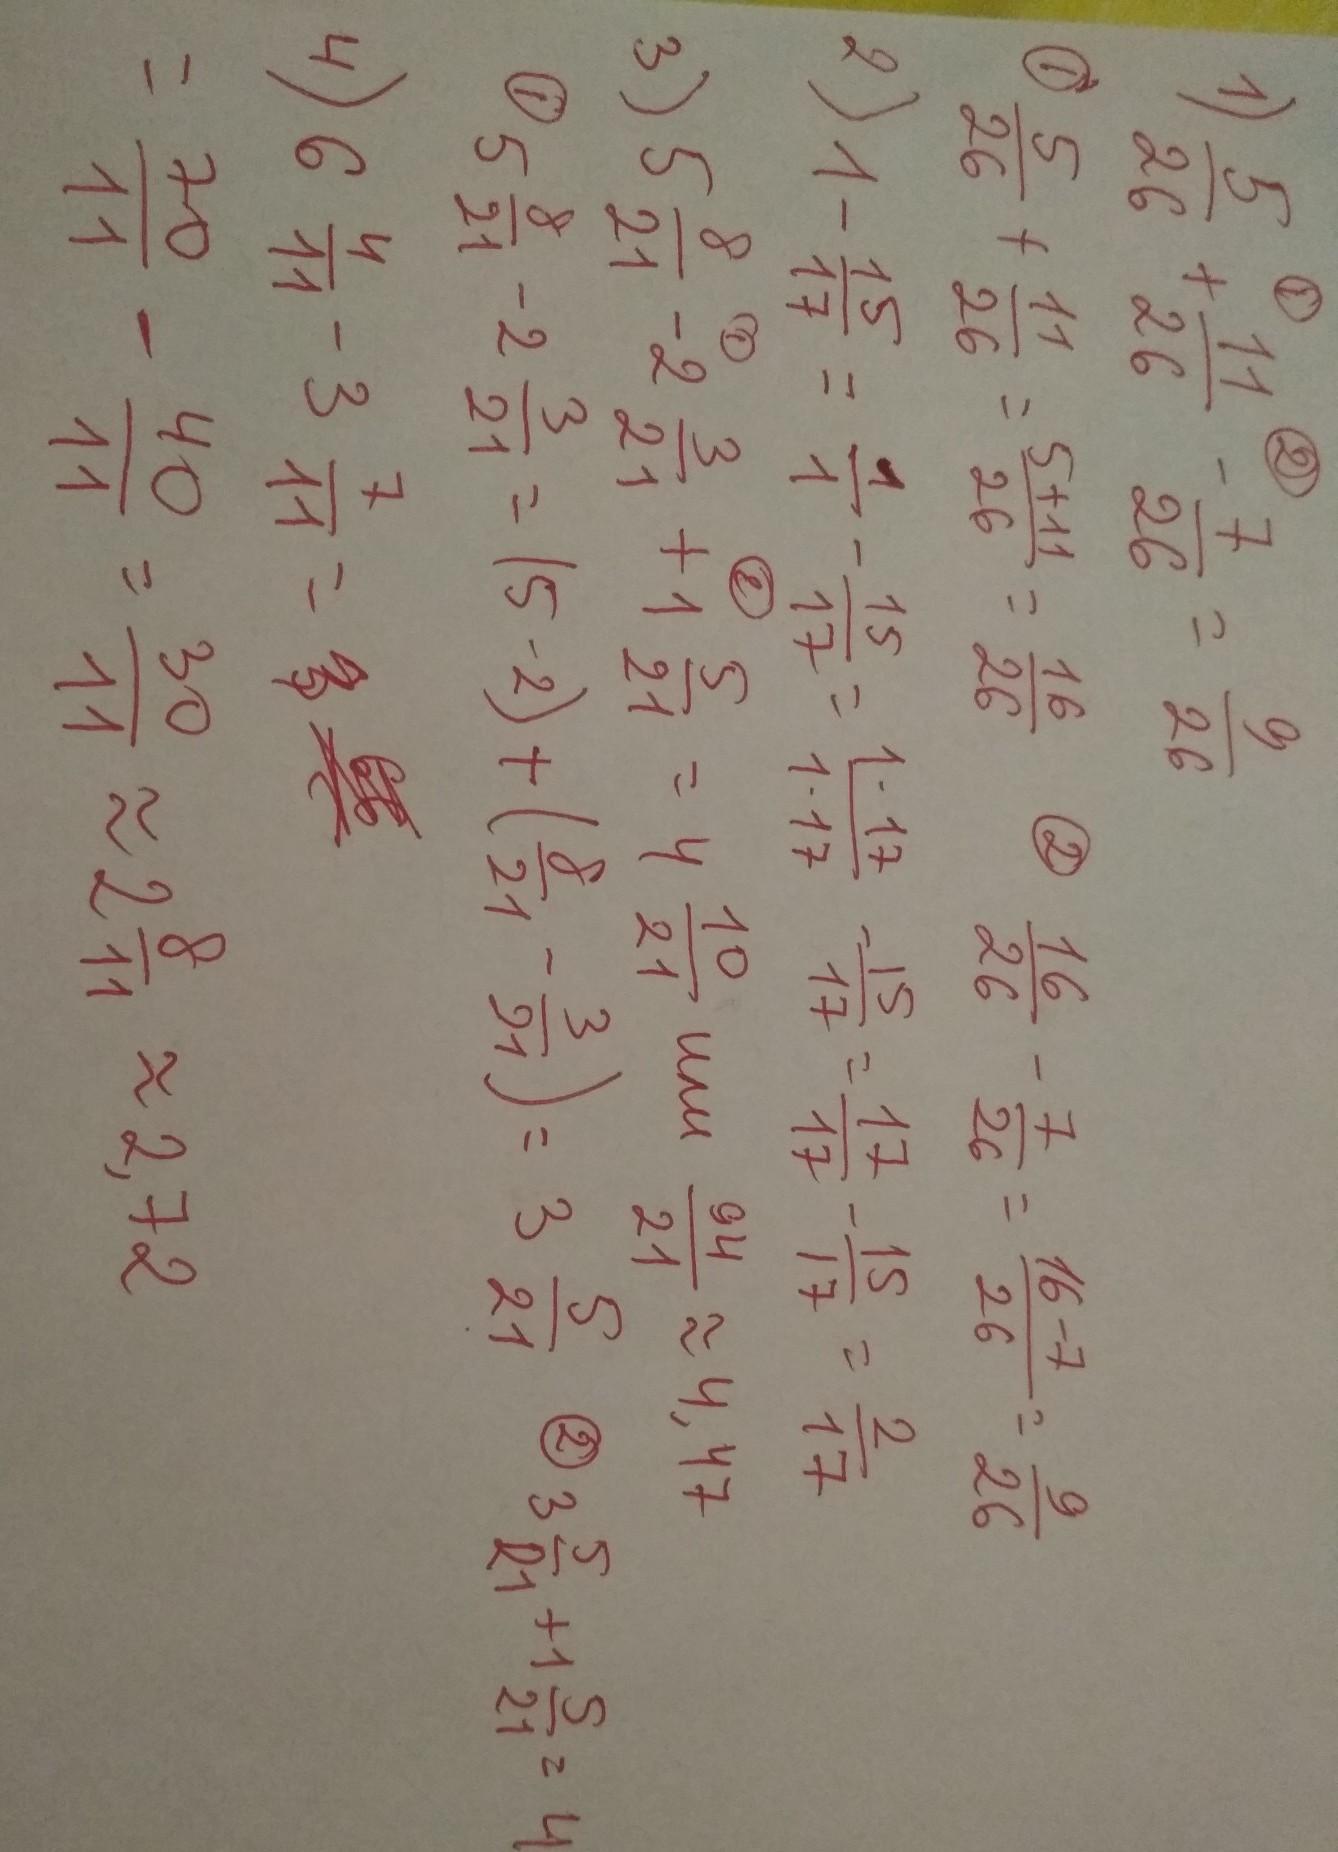 1) 5/26 + 11/26 - 7/26 = 9/26
① ②
① 5/26 + 11/26 = 5+11/26 = 16/26 ② 16/26 - 7/26 = 16-7/26 = 9/26
2) 1 - 15/17 = 1/1 - 15/17 = 1·17/1·17 - 15/17 = 17/17 - 15/17 = 2/17
① ②
3) 5 8/21 - 2 3/21 + 1 5/21 = 4 10/21 или 94/21 ≈ 4,47
① 5 8/21 - 2 3/21 = (5 - 2) + (8/21 - 3/21) = 3 5/21 ② 3 5/21 + 1 5/21 = 4
4) 6 4/11 - 3 7/11 =
= 70/11 - 40/11 = 30/11 ≈ 2 8/11 ≈ 2,72